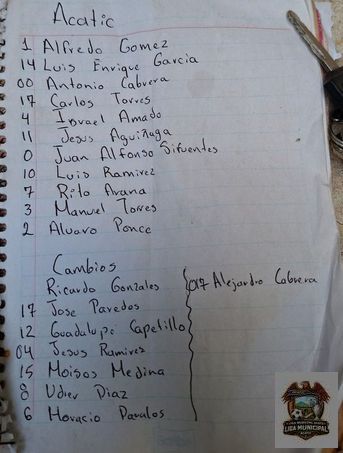 Acatic
1 Alfredo Gomez
14 Luis Enrique Garcia
00 Antonio Cabrera
17 Carlos Torres
4 Israel Amado
11 Jesus Aguiñaga
0 Juan Alfonso Sifuentes
10 Luis Ramirez
7 Rito Arana
3 Manuel Torres
2 Alvaro Ponce
Cambios
Ricardo Gonzales
017 Alejandro Cabrera
17 Jose Paredos
12 Guadalupe Capetillo
04 Jesus Ramires
15 Moisos Medina
8 Udier Diaz
6 Horacio Davalos
LIGA MUNICIPAL